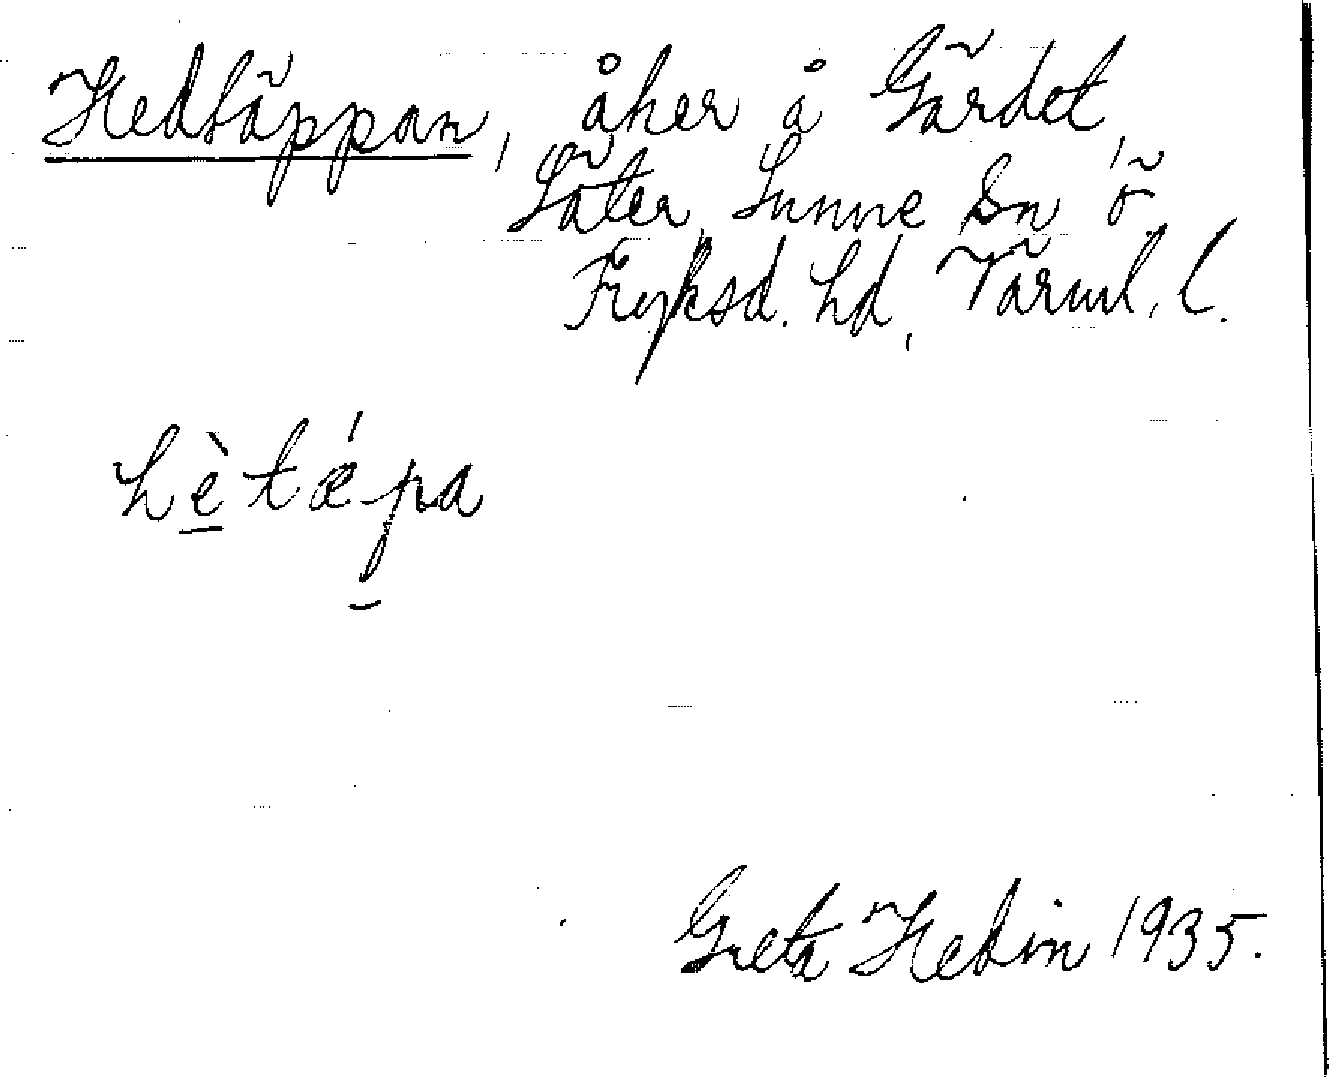 Hedtäppan, åker å Gärdet,
Säter, Sunne Sn ö
Fryksd. hd, Värml. l.
hètǽpa
Greta Hedin 1935.